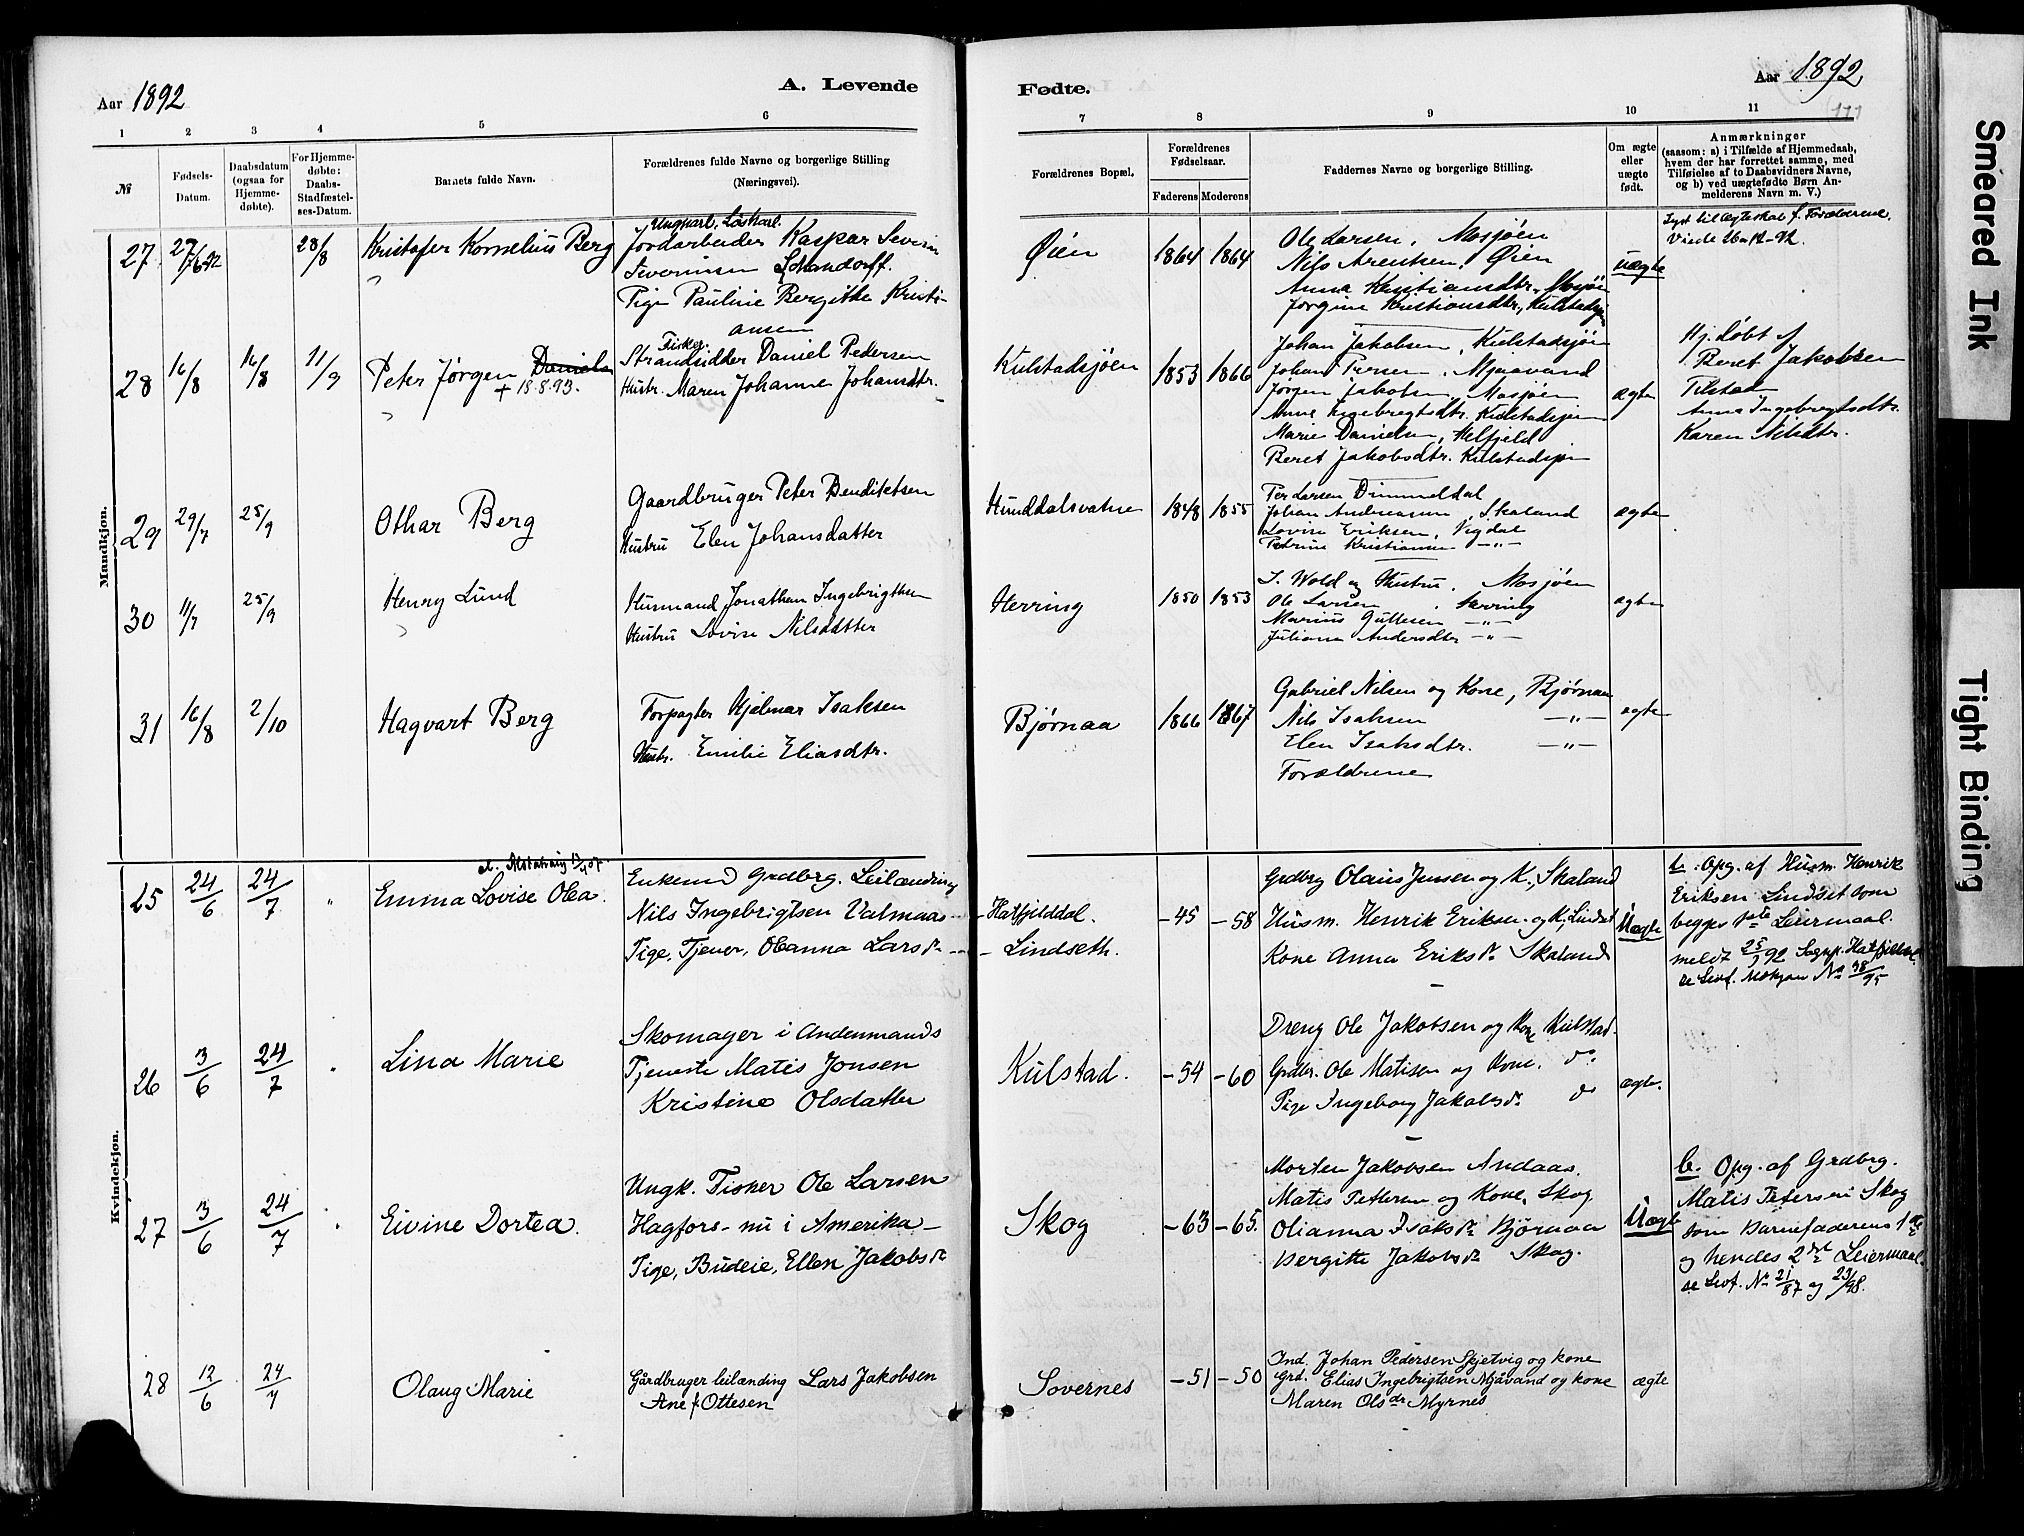 Aar 1892
A. Levende
Fødte.
Aar 1892
1 2 3 4 5 6 7 8 9 10 11
№
Fødsels-Datum.
Daabsdatum (ogsaa for Hjemme-døbte).
For Hjemme-døbte: Daabs-Stadfæstel-ses-Datum.
Barnets fulde Navn.
Forældrenes fulde Navne og borgerlige Stilling (Næringsvei).
Forældrenes Bopæl.
Forældrenes Fødselsaar.
Faderens Moderens
Faddernes Navne og borgerlige Stilling.
Om ægte eller uægte født.
Anmærkninger
(saasom: a) i Tilfælde af Hjemmedaab,
hvem der har forrettet samme, med
Tilføielse af to Daabsvidners Navne,
og b) ved uægtefødte Børn An-
melderens Navn m. V.)
Mandkjøn.
27 27/6 92 28/8 Kristofer Kornelius Berg
Ungkarl, Løskarl.
Jordarbeider Kaspar Severin
Severinsen
Pige Pauline Bergitha Kristi-
ansen
Øien 1864 1864
Ole Larsen, Mosjøen
Nils Arentsen, Øien
Anna Kristiansdtr, Mosjøn
Jørgine Kristiansdtr, Kulstadsjøn
uægte
Lyst til Ægteskab f. Forældrene.
Viede 26-12-92.
28 16/8 16/8 11/9 Peter Jørgen Daniels
+ 18.8.93.
Fisker.
Strandsidder Daniel Pedersen
Hustr. Maren Johanne Johansdtr.
Kulstadsjøen 1853 1866
Johan Jakobsen, Kulstadsjøn
Johan Persen, Mjaavand
Jørgen Jakobsen, Mosjøen
Anne Ingebregtsdtr. Kulstadsjøen
Marie Danielsen, Kelfjeld
Beret Jakobsdtr. Kulstadsjøn
ægte
Hj. døbt af
Beret Jakobsen
Tilstad
Anna Ingebregtsdtr.
Karen Nilsdtr.
29 29/7 25/9 Othar Berg
Gaardbruger Peter Bendiktsen
Hustru Elen Johansdatter
Hunddalsvatne 1848 1855
Per Larsen Dimmeldal
Johan Andreassen, Skaland
Lovise Eriksen, Vigdal
Petrine Kristiansen -"-
ægte
30 11/7 25/9 Henry Lund
Husmand Jonathan Ingebrigtsen
Hustru Lovise Nilsdatter
Herring 1850 1853
I. Wold og Hustru, Mosjøen
Ole Larsen, Herring
Marius Guttesen -"-
Juliana Andersdtr -"-
ægte
31 16/8 2/10 Hagvart Berg
Forpagter Hjelmar Isaksen
Hustr. Emilie Eliasdtr.
Bjørnaa 1866 1867
Gabriel Nilsen og Kone, Bjørnaa
Nils Isaksen -"-
Elen Isaksdtr. -"-
Forældrene
ægte
Kvindekjøn.
25 24/6 24/7 " Emma Lovise Olea.
Enkemd Grdbrg. Leilænding
Nils Ingebrigtsen Valmaas
Pige, Tjener, Oleanna Larsdr
- Hatfjelddal.
- Lindseth.
-45 -58
Grdbrg Olaus Jensen og K., Skaland
Husm. Henrik Eriksen og K., Lindset
Kone Anna Eriksdr Skaland
Uægte
b. Opg. af Husm. Henrik
Eriksen Lindset som
begges 1ste Leiermaal.
meldt 25/7 92 Sognp. Hatfjeldd.
se Levf. Mskjøn No 38/95
26 3/6 24/7 Lina Marie
Skomager i Andenmands
Tjeneste Matis Jonsen
Kristine Olsdatter
Kulstad. -54 -60
Dreng Ole Jakobsen og Kone Kulstad.
Grdbr. Ole Matisen og Kone. do.
Pige Ingeborg Jakobsdr do
ægte.
27 3/6 24/7 Eivine Dortea.
Ungk. Fisker Ole Larsen
Hagfors - nu i Amerika -
Pige, Budeie, Ellen Jakobsdr
Skog -63 -65.
Morten Jakobsen Andaas.
Matis Pettersen og Kone, Skog
Olianna Isaksdr Bjørnaa
Bergitte Jakobsdr Skog.
Uægte
b. Opg. af Grdbrg.
Matis Petersen Skog
som Barnefaderens 1ste
og hendes 2det Leiermaal.
se Levf. No 21/87 og 23/98.
28 12/6 24/7 Olaug Marie
Gårdbruger leilænding Lars Jakobsen
Ane f. Ottesen
Sovernes -51 -50
Ind. Johan Pedersen Skjetvig og kone
Grd. Elias Ingebrigtsen Mjåvand og kone
Maren Olsdr Myrnes
ægte
Smeared Ink
Tight Binding